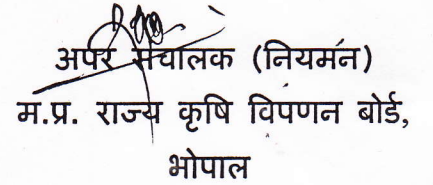 अपर संचालक (नियमन)
म.प्र. राज्य कृषि विपणन बोर्ड,
भोपाल